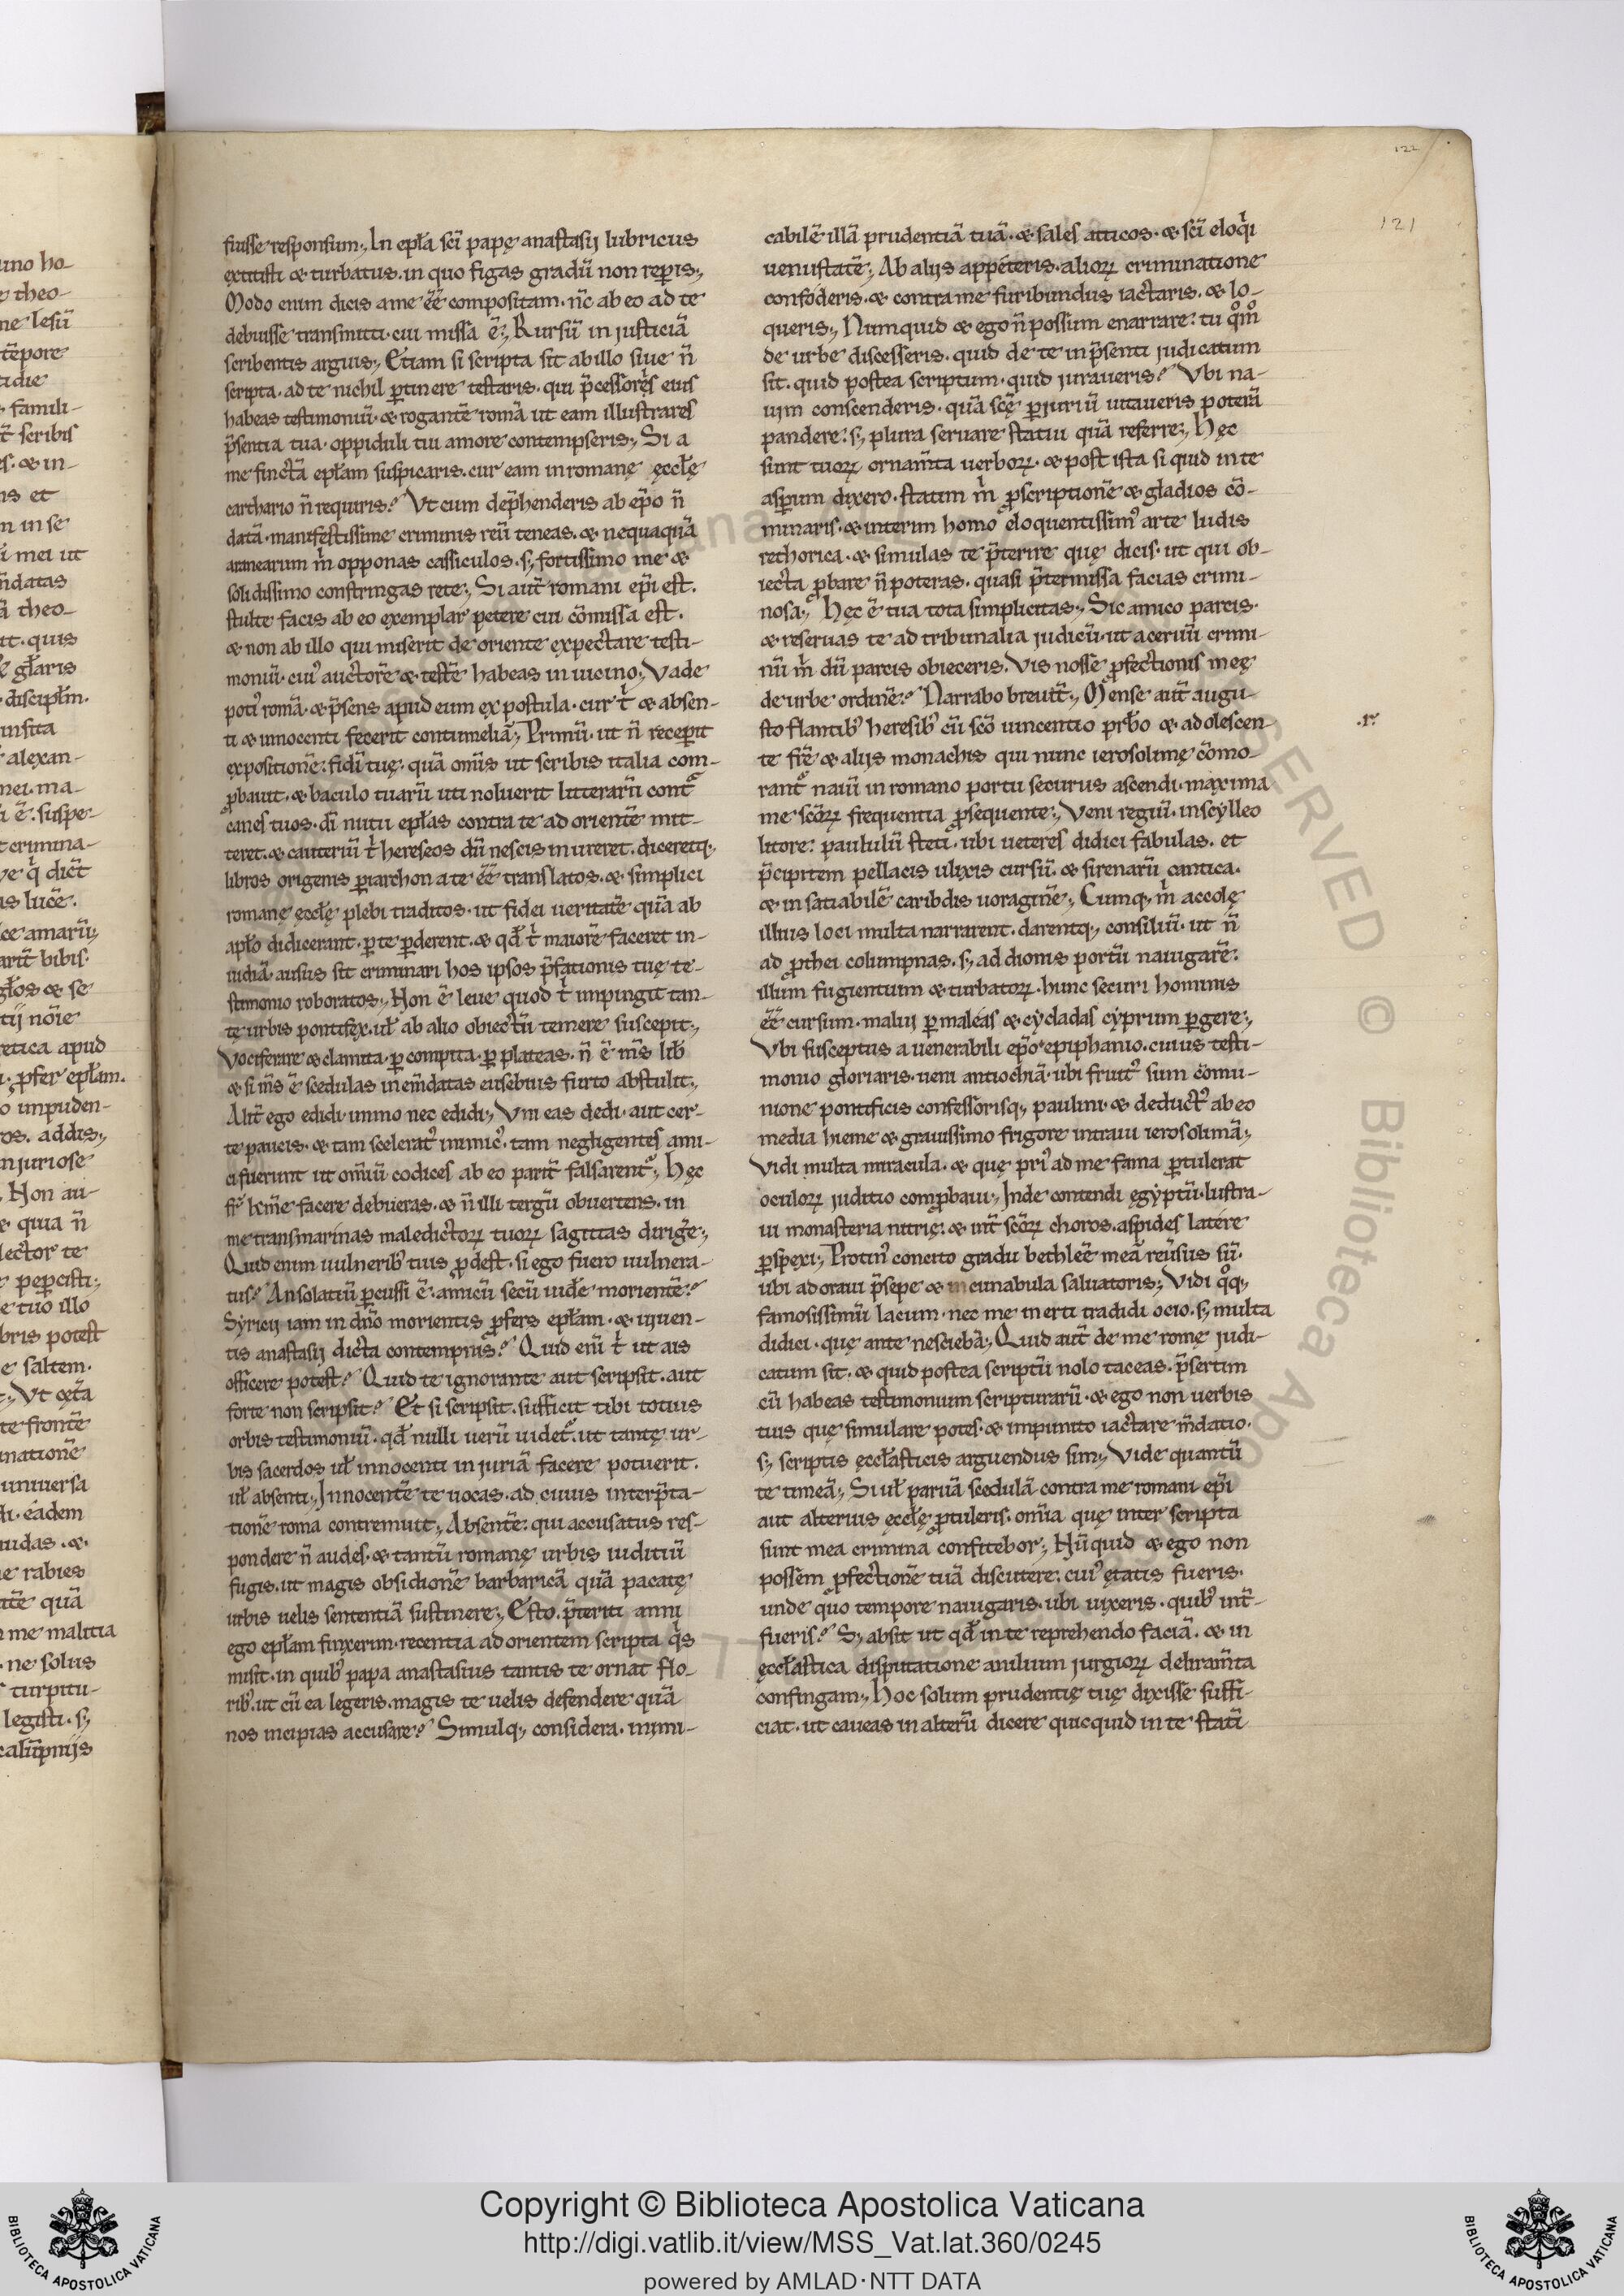 122
121
fuisse responsum., In epła sci papę anastasij lubricus
extitisti & turbatus. in quo figas gradū non reperis.,
Modo enim dicis a me ēē compositam. nc̄ ab eo ad te
debuisse transmitti. cui missa ē., Rursū in justiciā
scribentis arguis., Etiam si scripta sit ab illo siue n̄
scripta. ad te nichil ꝑtinere testaris. qui p̄cessoręs eius
habeas testimoniū. & rogantē romā ut eam illustrares
p̄sentia tua. oppiduli tui amore contempseris., Si a
me finctā epłam suspicaris. cur eam in romanę ęccłę
carthario n̄ requiris? Vt cum dep̄henderis ab ep̄o n̄
datā. manifestissime criminis reū teneas. & nequaquā
aranearum m̍ opponas cassiculos. s; fortissimo me &
solidissimo constringas rete., Si aut̄ romani ep̄i est.
stulte facis ab eo exemplar petere cui cōmissa est.
& non ab illo qui miserit de oriente expectare testi-
moniū. cuiꝰ auctorē & testē habeas in uicino., Vade
potiꝰ romā. & p̄sens apud eum expostula. cur t̍ & absen-
ti & innocenti fecerit contumeliā., Primū. ut n̄ receꝑit
expositionē: fidi tuę. quā om̄is ut scribis italia com-
ꝓbauit. & baculo tuarū uti noluerit litterarū cont
canes tuos. dī nutu epłas contra te ad orientē mit-
teret. & cauteriū t̍ hereseos dū nescis inureret. diceretq;
libros origenis periarchon a te ēē translatos. & simplici
romane ęccłę plebi traditos. ut fidei ueritatē quā ab
apło didicerant. ꝑ te ꝑderent. & qđ t̍ maiorē faceret in-
uidiā. ausus sit criminari hos ipsos p̄fationis tuę te-
stimonio roboratos., Non ē leue quod t̍ impingit tan-
tę urbis pontifex. uł ab alio obiectū temere suscepit.,
Vociferare & clamita. ꝑ compita. ꝑ plateas. n̄ ē m̄s lib̄
& si m̄s ē scedulas inem̄datas eusebius furto abstulit.,
Alit̄ ego edidi. immo nec edidi., Vni eas dedi. aut cer-
te paucis. & tam sceleratꝰ inimicꝰ. tam negligentes ami-
ci fuerunt ut om̄iū codices ab eo parit̄ falsarent., Hęc
fr̄ kme facere debueras. & n̄ illi tergū obuertens. in
me transmarinas maledictoꝝ tuoꝝ sagittas dirigē.,
Quid enim uulneribꝰ tuis ꝓdest. si ego fuero uulnera-
tus? An solatiū ꝑcussi ē. amicū secū uidē morientē?
Syricij iam in dn̄o morientis ꝓfers epłam. & uiuen-
tis anastasij dicta contempnis? Quid eni t̍ ut ais
officere potest? Quid te ignorante aut scripsit. aut
forte non scripsit? Et si scripsit. sufficit tibi totius
orbis testimoniū. qđ nulli uerū uidet. ut tantę ur-
bis sacerdos uł innocenti injuriā facere potuerit.
uł absenti., Innocentē te uocas. ad cuius interp̄ta-
tionē roma contremuit., Absentē: qui accusatus res-
pondere n̄ audes. & tantū romanę urbis iuditiū
fugis. ut magis obsidionē barbaricā quā pacatę
urbis uelis sententiā sustinere., Esto. p̄teriti anni
ego epłam finxerim. recentia ad orientem scripta q̍s
misit. in quibꝰ papa anastasius tantis te ornat flo-
ribꝰ. ut cū ea legeris. magis te uelis defendere quā
nos incipias accusare? Simulq; considera. inimi-
cabilē illā prudentiā tuā. & sales atticos. & sci eloq̍i
uenustatē., Ab alijs appéteris. alioꝝ criminatione
confoderis. & contra me furibundus iactaris. & lo-
queris., Numquid & ego n̄ possum enarrare: tu qm̄
de urbe discesseris. quid de te in p̄senti judicatum
sit. quid postea scriptum. quid juraueris? Vbi na-
uim conscenderis. quā scę ꝑjuriū uitaueris poterā
pandere: s; plura seruare statui quā referre., Hęc
sunt tuoꝝ ornam̄ta uerboꝝ. & post ista si quid in te
asꝑum dixero. statim m̍ ꝓscriptionē & gladios cō-
minaris. & interim homo eloquentissimꝰ arte ludis
rethorica. & simulas te p̄terire quę dicis. ut qui ob-
iecta ꝓbare n̄ poteras. quasi p̄termissa facias crimi-
nosa., Hęc ē tua tota simplicitas., Sic amico parcis.
& reseruas te ad tribunalia judicū. ut aceruū crimi-
nū m̍ dū parcis obieceris. Vis nosse ꝓfectionis meę
de urbe ordinē? Narrabo breuit̄., Mense aut̄ augu-
sto flantibꝰ heresibꝰ cū scō uincentio prb̄o & adolescen-
.r.
te fr̄e & alijs monachis qui nunc ierosolimę cōmo-
rant nauī in romano portu securus ascendi. maxima
me scōꝝ frequentia ꝓsequente., Veni regiū. in scylleo
litore: paululū steti. ubi ueteres didici fabulas. et
p̄cipitem pellacis ulixis cursū. & sirenarū cantica.
& insatiabilē caribdis uoraginē., Cumq; m̍ accolę
illius loci multa narrarent. darentq; consiliū. ut n̄
ad ꝓthei columpnas. s; ad dionis portū nauigarē:
illum fugientium & turbatoꝝ. hunc securi hominis
ēē cursum. malui ꝑ maleas & cycladas cyprum ꝑgere.,
Vbi susceptus a uenerabili ep̄o epiphanio. cuius testi-
monio gloriaris. ueni antiochiā. ubi fruitꝰ sum cōmu-
nione pontificis confessorisq; paulini. & deductꝰ ab eo
media hieme & grauissimo frigore intraui ierosolimā.,
Vidi multa miracula. & quę priꝰ ad me fama ꝑtulerat
oculoꝝ juditio comꝓbaui., Inde contendi ęgyptū. lustra-
ui monasteria nitrię. & int̄ scōꝝ choros. aspides latére
ꝑspexi., Protinꝰ concito gradu bethleē meā reūsus sū.
ubi adoraui p̄sepe & incunabula saluatoris., Vidi qq;
famosissimū lacum. nec me inerti tradidi ocio. s; multa
didici. quę ante nesciebā., Quid aut̄ de me romę judi-
catum sit. & quid postea scriptū nolo taceas. p̄sertim
cū habeas testimonium scripturarū. & ego non uerbis
tuis quę simulare potes. & impunito iactare m̄datio.
s; scriptis ęccłasticis arguendus sim., Vide quantū
te timeā., Si uł paruā scedulā contra me romani ep̄i
aut alterius ęccłę ꝓtuleris. om̄ia quę inter scripta
sunt mea crimina confitebor., Nūquid & ego non
possem ꝓfectionē tuā discutere: cuiꝰ ętatis fueris.
unde quo tempore nauigaris. ubi uixeris. quibꝰ int̄-
fueris? S; absit ut qđ in te reprehendo faciā. & in
ęccłastica disputatione anilium jurgioꝝ deliram̄ta
confingam., Hoc solum prudentię tuę dixisse suffi-
ciat. ut caueas in alterū dicere quicquid in te statī
Copyright © Biblioteca Apostolica Vaticana
http://digi.vatlib.it/view/MSS_Vat.lat.360/0245
powered by AMLAD·NTT DATA
BIBLIOTECA APOSTOLICA VATICANA
BIBLIOTECA APOSTOLICA VATICANA